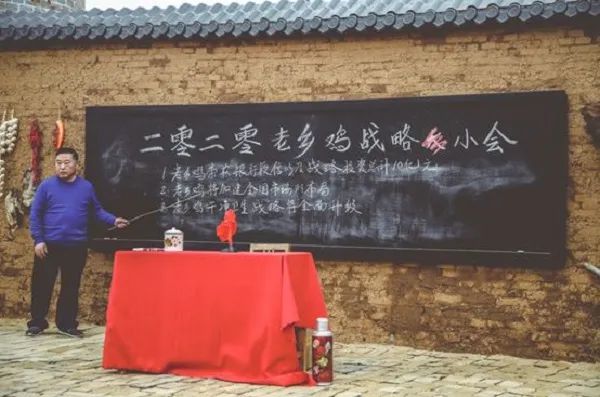 二零二零老乡鸡战略小会
1.老乡鸡银行授信以及战略投资总计10亿元
2.老乡鸡将加速全国市场的布局
3.老乡鸡干净卫生战略将全面升级